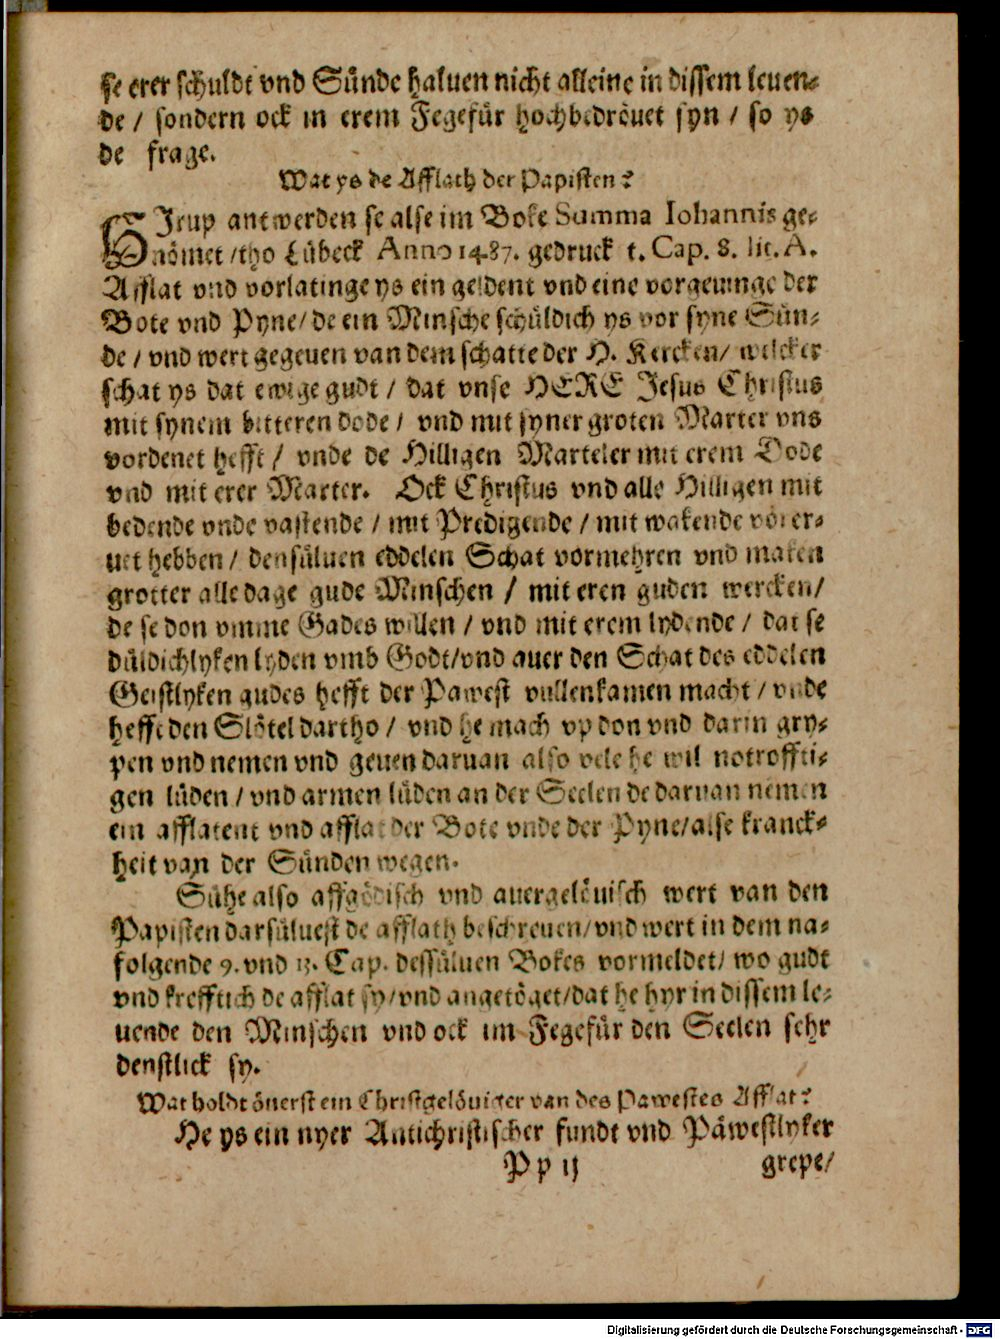 se erer schuldt vnd Sünde haluen nicht alleine in dissem leuen⸗
de / sondern ock in erem Fegefür hochbedröuet syn / so ys
de frage.
Wat ys de Afflath der Papisten?
HIrup antwerden se alse im Boke Summa Iohannis ge⸗
nömet /tho Lübeck Anno 1487. gedruckt. Cap. 8. lit. A.
Afflat vnd vorlatinge ys ein geldent vnd eine vorgeuinge der
Bote vnd Pyne/ de ein Minsche schüldich ys vor syne Sün⸗
de / vnd wert gegeuen van dem schatte der H. Kercken/ welcker
schat ys dat ewige gudt / dat vnse HERE Jesus Christus
mit synem bitteren dode / vnd mit syner groten Marter vns
vordenet hefft / vnde de Hilligen Marteler mit erem Dode
vnd mit erer Marter. Ock Christus vnd alle Hilligen mit
bedende vnde vastende / mit Predigende / mit wakende vörer⸗
uet hebben / densüluen eddelen Schat vormehren vnd maken
grotter alle dage gude Minschen / mit eren guden wercken/
de se don vmme Gades willen / vnd mit erem lydende / dat se
düldichlyken lyden vmb Godt/vnd auer den Schat des eddelen
Geistlyken gudes hefft der Pawest vullenkamen macht / vnde
hefft den Slötel dartho / vnd he mach vp don vnd darin gry⸗
pen vnd nemen vnd geuen daruan also vele he wil notroffti⸗
gen lüden / vnd armen lüden an der Seelen de daruan nemen
ein afflatent vnd afflat der Bote vnde der Pyne/alse kranck⸗
heit van der Sünden wegen.
Sühe also affgödisch vnd auergelöuisch wert van den
Papisten darsüluest de afflath beschreuen/vnd wert in dem na⸗
folgende 9. vnd 13. Cap. dessüluen Bokes vormeldet/ wo gudt
vnd krefftich de afflat sy/vnd angetöget/dat he hyr in dissem le⸗
uende den Minschen vnd ock im Fegefür den Seelen sehr
denstlick sy.
Wat holdt öuerst ein Christgelöuiger van des Pawestes Afflat?
He ys ein nyer Antichristischer fundt vnd Päwestlyker
Pp ij grepe/
Digitalisierung gefördert durch die Deutsche Forschungsgemeinschaft - DFG